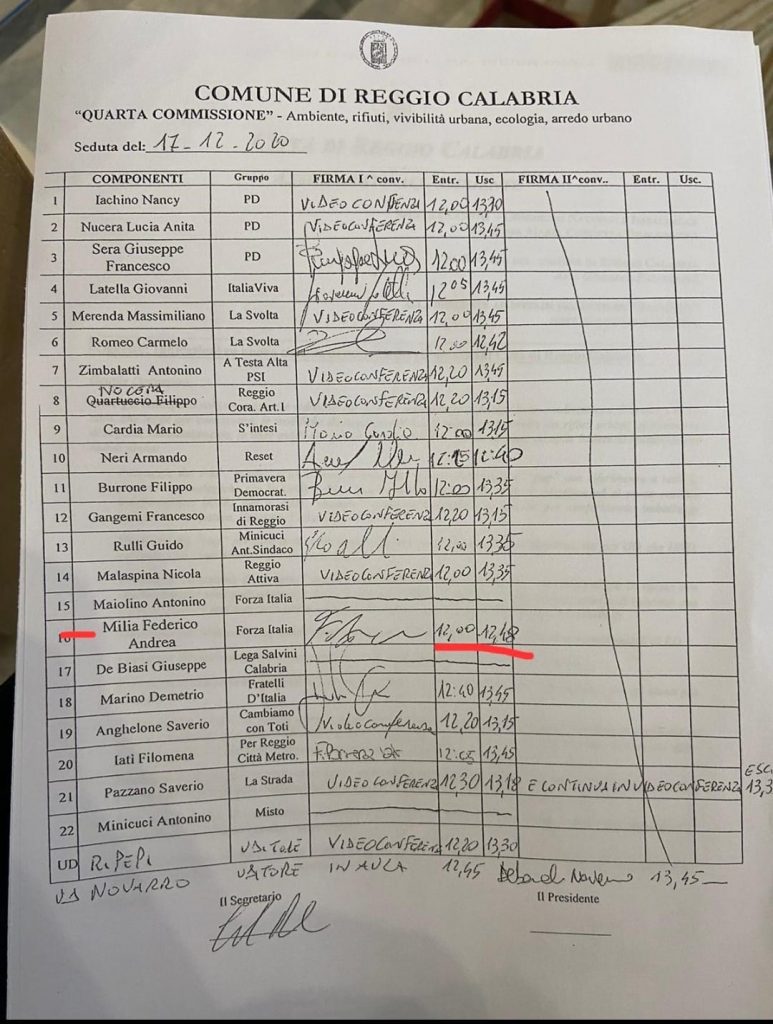 COMUNE DI REGGIO CALABRIA
“QUARTA COMMISSIONE” - Ambiente, rifiuti, vivibilità urbana, ecologia, arredo urbano
Seduta del: 17-12-2020
COMPONENTI Gruppo FIRMA I^ conv. Entr. Usc FIRMA II^conv.. Entr. Usc.
1 Iachino Nancy PD VIDEO CONFENZA 12,00 13,30
2 Nucera Lucia Anita PD VIDEOCONFERENZA 12,00 13,45
3 Sera Giuseppe Francesco PD 12,00 13,45
4 Latella Giovanni ItaliaViva 12,05 13,45
5 Merenda Massimiliano La Svolta VIDEOCONFERENZA 12,00 13,45
6 Romeo Carmelo La Svolta 12,00 12,42
7 Zimbalatti Antonino A Testa Alta PSI VIDEOCONFERENZA 12,20 13,45
8 NOCERA Quartuccio Filippo Reggio Cora. Art.1 VIDEOCONFERENZA 12,20 13,15
9 Cardia Mario S'intesi Mario Cardia 12:00 13,15
10 Neri Armando Reset 12:15 12:40
11 Burrone Filippo Primavera Democrat. 12:00 13,35
12 Gangemi Francesco Innamorasi di Reggio VIDEOCONFERENZA 12,20 13,15
13 Rulli Guido Minicuci Ant.Sindaco 12,00 13,35
14 Malaspina Nicola Reggio Attiva VIDEOCONFERENZA 12,00 13,35
15 Maiolino Antonino Forza Italia
16 Milia Federico Andrea Forza Italia 12,00 12,48
17 De Biasi Giuseppe Lega Salvini Calabria
18 Marino Demetrio Fratelli D'Italia 12:40 13,45
19 Anghelone Saverio Cambiamo con Toti Videoconferenza 12,20 13,15
20 Iati Filomena Per Reggio Città Metro. 12:05 13,45
21 Pazzano Saverio La Strada VIDEOCONFERENZA 12,30 13,18 E CONTINUA IN VIDEOCONFERENZA ESCE 13,3
22 Minicuci Antonino Misto
UD RIPEPI UDITORE VIDEOCONFERENZA 12,20 13,30
NOVARRO IN AULA 12,45 13,45
Il Segretario Il Presidente